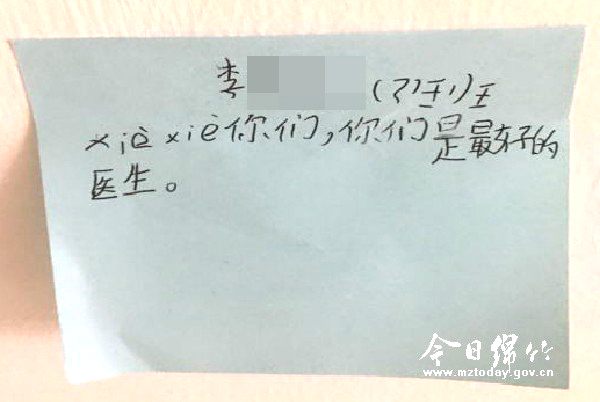 李
xiè xiè你们,你们是最好的
医生。
今日绵竹
www.mztoday.gov.cn